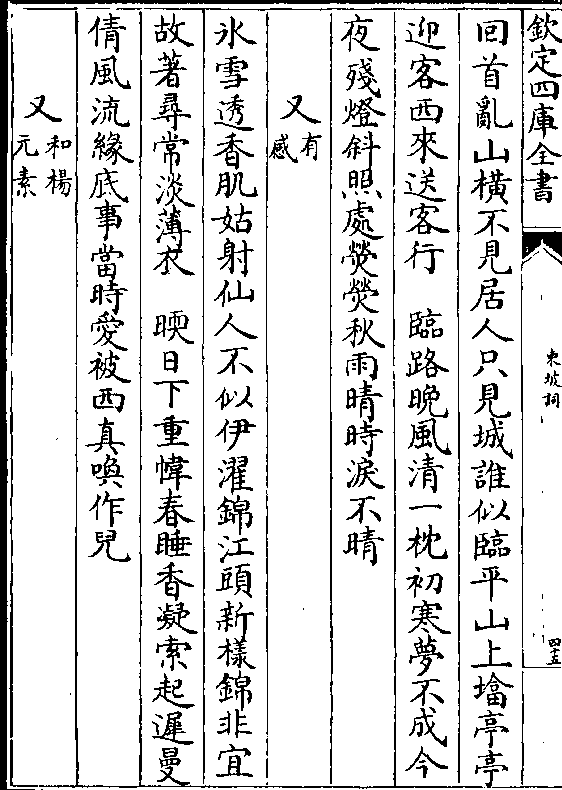 欽定四庫全書
東坡詞
四十五
回首亂山橫不見居人只見城誰似臨平山上墖亭亭
迎客西來送客行　臨路晚風清一枕初寒夢不成今
夜殘燈斜照處熒熒秋雨晴時淚不晴
又有感
氷雪透香肌姑射仙人不似伊濯錦江頭新様錦非宜
故著尋常淡薄衣　暎日下重幃春睡香凝索起遲曼
倩風流緣底事當時愛被西真喚作兒
又和楊元素